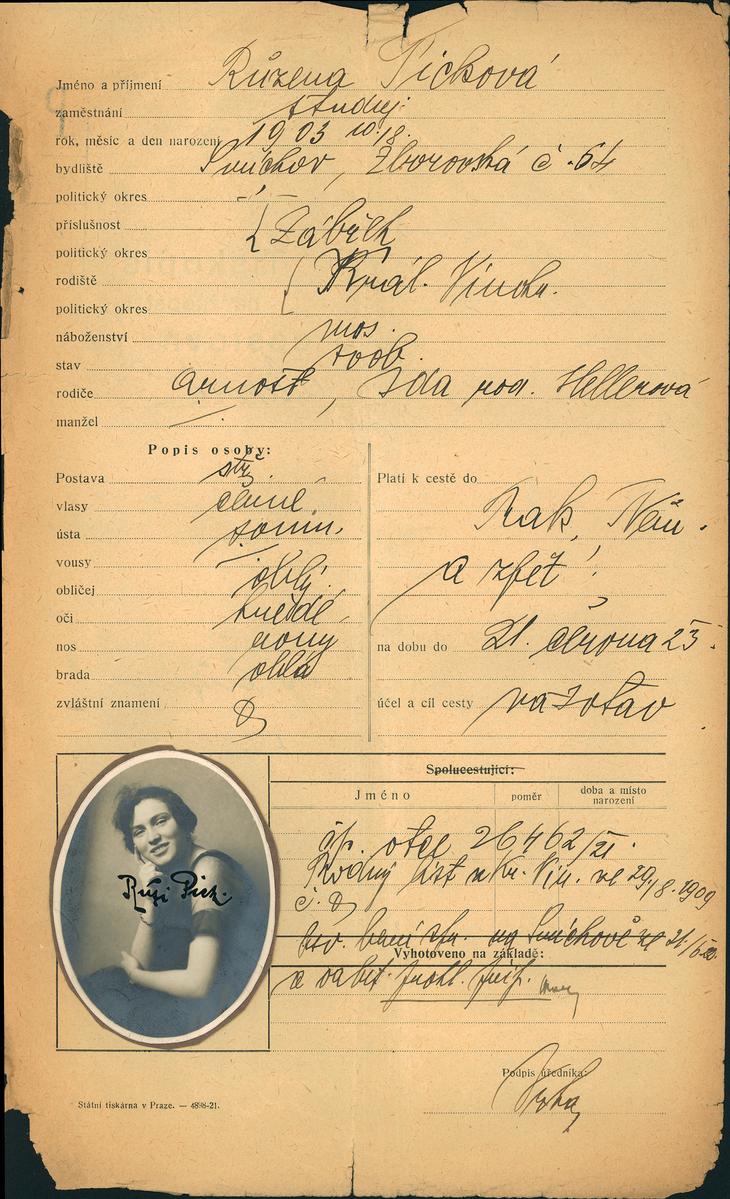 Jméno a příjmení Růžena Picková
zaměstnání studuj.
rok, měsíc a den narození 1903 10/8.
bydliště Smíchov, Zborovská č. 64
politický okres
příslušnost Zábřeh
politický okres
rodiště Král. Vinohr.
politický okres
náboženství mos.
stav svob.
rodiče Arnošt, Ida roz. Hellerová
manžel
Popis osoby:
Postava stř.
vlasy černé
ústa soum.
vousy
obličej oblý
oči hnědé
nos rovný
brada oblá
zvláštní znamení
Platí k cestě do
Rak, Něm.
a zpět!
na dobu do 21. června 23.
účel a cíl cesty na zotav
Spolucestující:
Jméno poměr doba a místo narození
čp. otce 26462/21.
Rodný list Kr. Vin. ze 29/8. 1909
č.
na Smíchově ze 21/6
Vyhotoveno na základě:
a
Ruzi Pick.
Podpis úředníka:
Státní tiskárna v Praze. — 4898-21.